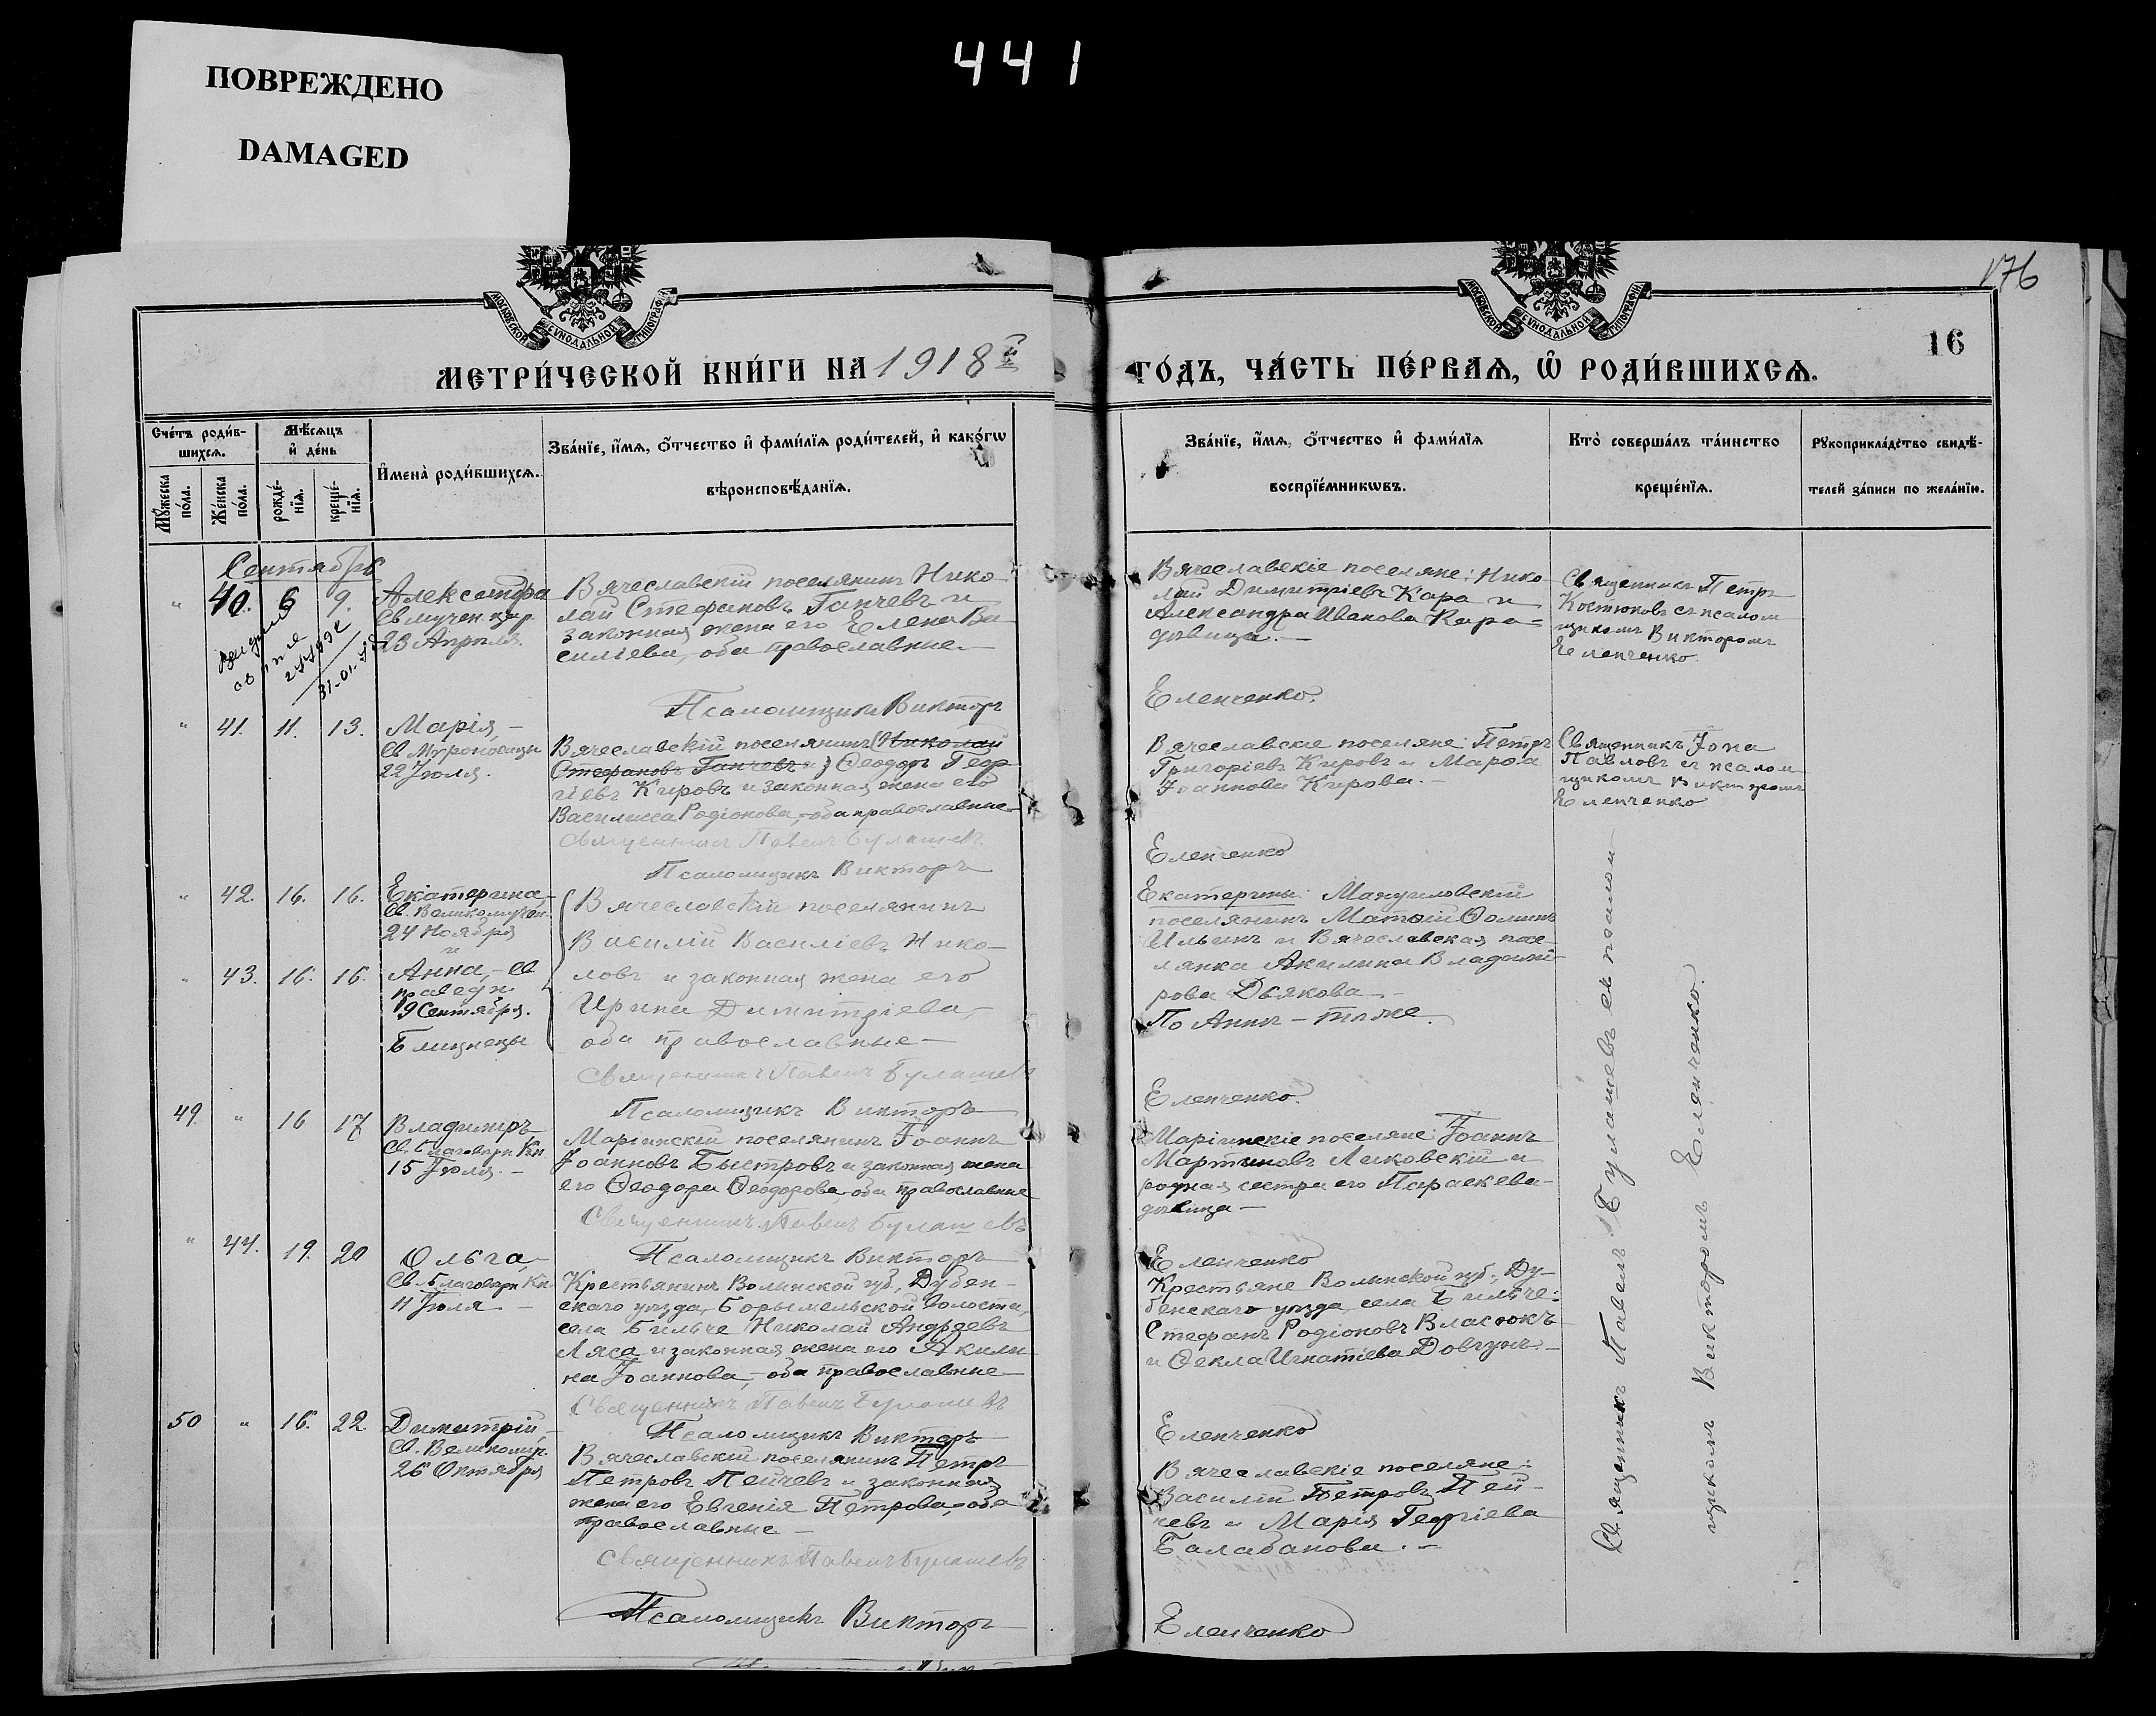 ПОВРЕЖДЕНО
DAMAGED
441
176
16
МОСКОВСКОЙ СѴНОДАЛЬНОЙ ТИПОГРАФІИ
МОСКОВСКОЙ СѴНОДАЛЬНОЙ ТИПОГРАФІИ
МЕТРИ́ЧЕСКОЙ КНИ́ГИ НА 1918й
ГО́ДЪ, ЧА́СТЬ ПЕ́РВАѦ, Ѡ҆ РОДИ́ВШИХСѦ.
Сче́тъ роди́в-
шихсѧ.
Мꙋ́жеска по́ла.
Же́нска по́ла.
Мѣ́сѧцъ
и҆ де́нь
рожде́-
нїѧ.
креще́-
нїѧ.
И҆мена̀ роди́вшихсѧ.
Зва́нїе, и҆́мѧ, ѻ҆́тчество и҆ фами́лїѧ роди́телей, и҆ како́гѡ
вѣроисповѣ́данїѧ.
Зва́нїе, и҆́мѧ, ѻ҆́тчество и҆ фами́лїѧ
воспрїе́мникѡвъ.
Кто̀ соверша́лъ та́инство
креще́нїѧ.
Рꙋкоприкла́дство свидѣ́-
телей за́писи по жела́нїю.
Сентябрь
" 40. 6 9.
Александра
Св мучен. цар.
23 Апрѣля.
31-01-
Вячеславскій поселянинъ Нико-
лай Стефановъ Ганчевъ и
законная жена его Елена Ва-
сильева, оба православные.-
Псаломщикъ Викторъ
Вячеславскіе поселяне: Нико-
лай Димитріевъ Кара и
Александра Иванова Кара-
дѣвица.-
Еленченко.
Священникъ Петръ
Костюковъ съ псалом
щикомъ Викторомъ
Еленченко.
" 41. 11. 13.
Марія,-
Св Мѵроносицы
22 Іюля.
Вячеславскій поселянинъ (Николай
Стефановъ Ганчевъ и) Ѳеодоръ Геор-
гіевъ Кировъ и законная жена его
Василисса Родіонова,-оба православные-
Священникъ Павелъ Булашевъ
Псаломщикъ Викторъ
Вячеславскіе поселяне: Петръ
Григоріевъ Кировъ и Марѳа
Іоаннова Кирова.-
Еленченко
Священникъ Іона
Павловъ съ псалом-
щикомъ Викторомъ
Еленченко
" 42. 16. 16.
Екатерина,-
Св. Великомучен.
24 Ноября
и
" 43. 16. 16.
Анна,-св
праведн.
9 Сентября.
Близнецы
Вячеславскій поселянинъ
Василій Василіевъ Нико-
ловъ и законная жена его
Ирина Димитріева,-
оба православные-
Священникъ Павелъ Булашевъ
Псаломщикъ Викторъ
Екатерины: Мануиловскій
поселянинъ Матѳій Ѳоминъ
Ильинъ и Вячеславская посе-
лянка Акилина Владимі-
рова Дьякова.-
По Аннѣ-тѣже.
Еленченко.
49 " 16 17
Владиміръ
Св. Благовѣрн Кн.
15 Іюля.-
Маріинскій поселянинъ Іоаннъ
Іоанновъ Быстровъ и законная жена
его Ѳеодора Ѳеодорова оба православные
Священникъ Павелъ Булашевъ
Псаломщикъ Викторъ
Маріинскіе поселяне: Іоаннъ
Мартиновъ Лисковскій и
родная сестра его Параскева-
дѣвица-
Еленченко
" 44. 19. 20
Ольга-
Св. Благовѣрн. Кн.
11 Іюля-
Крестьянинъ Волынской губ., Дубен-
скаго уѣзда, Борымельской Волости,
села Бильче Николай Андреевъ
Ляса и законная жена его Акили-
на Іоаннова,-оба православные-
Священникъ Павелъ Булашевъ
Псаломщикъ Викторъ
Крестьяне Волынской губ., Ду-
бенскаго уѣзда, села Бильче:
Стефанъ Родіоновъ Власюкъ
и Ѳекла Игнатіева Довгунъ.-
Еленченко
50 " 16. 22.
Димитрій,-
Св. Великомуч.
26 Октября
Вячеславскій поселянинъ Петръ
Петровъ Пейчевъ и законная
жена его Евгенія Петрова,-оба
православные-
Священникъ Павелъ Булашевъ
Псаломщикъ Викторъ
Вячеславскіе поселяне:
Василій Петровъ Пей-
чевъ и Марія Георгіева
Балабанова.-
Еленченко
Священникъ Павелъ Булашевъ съ псалом-
щикомъ Викторомъ Еленченко.